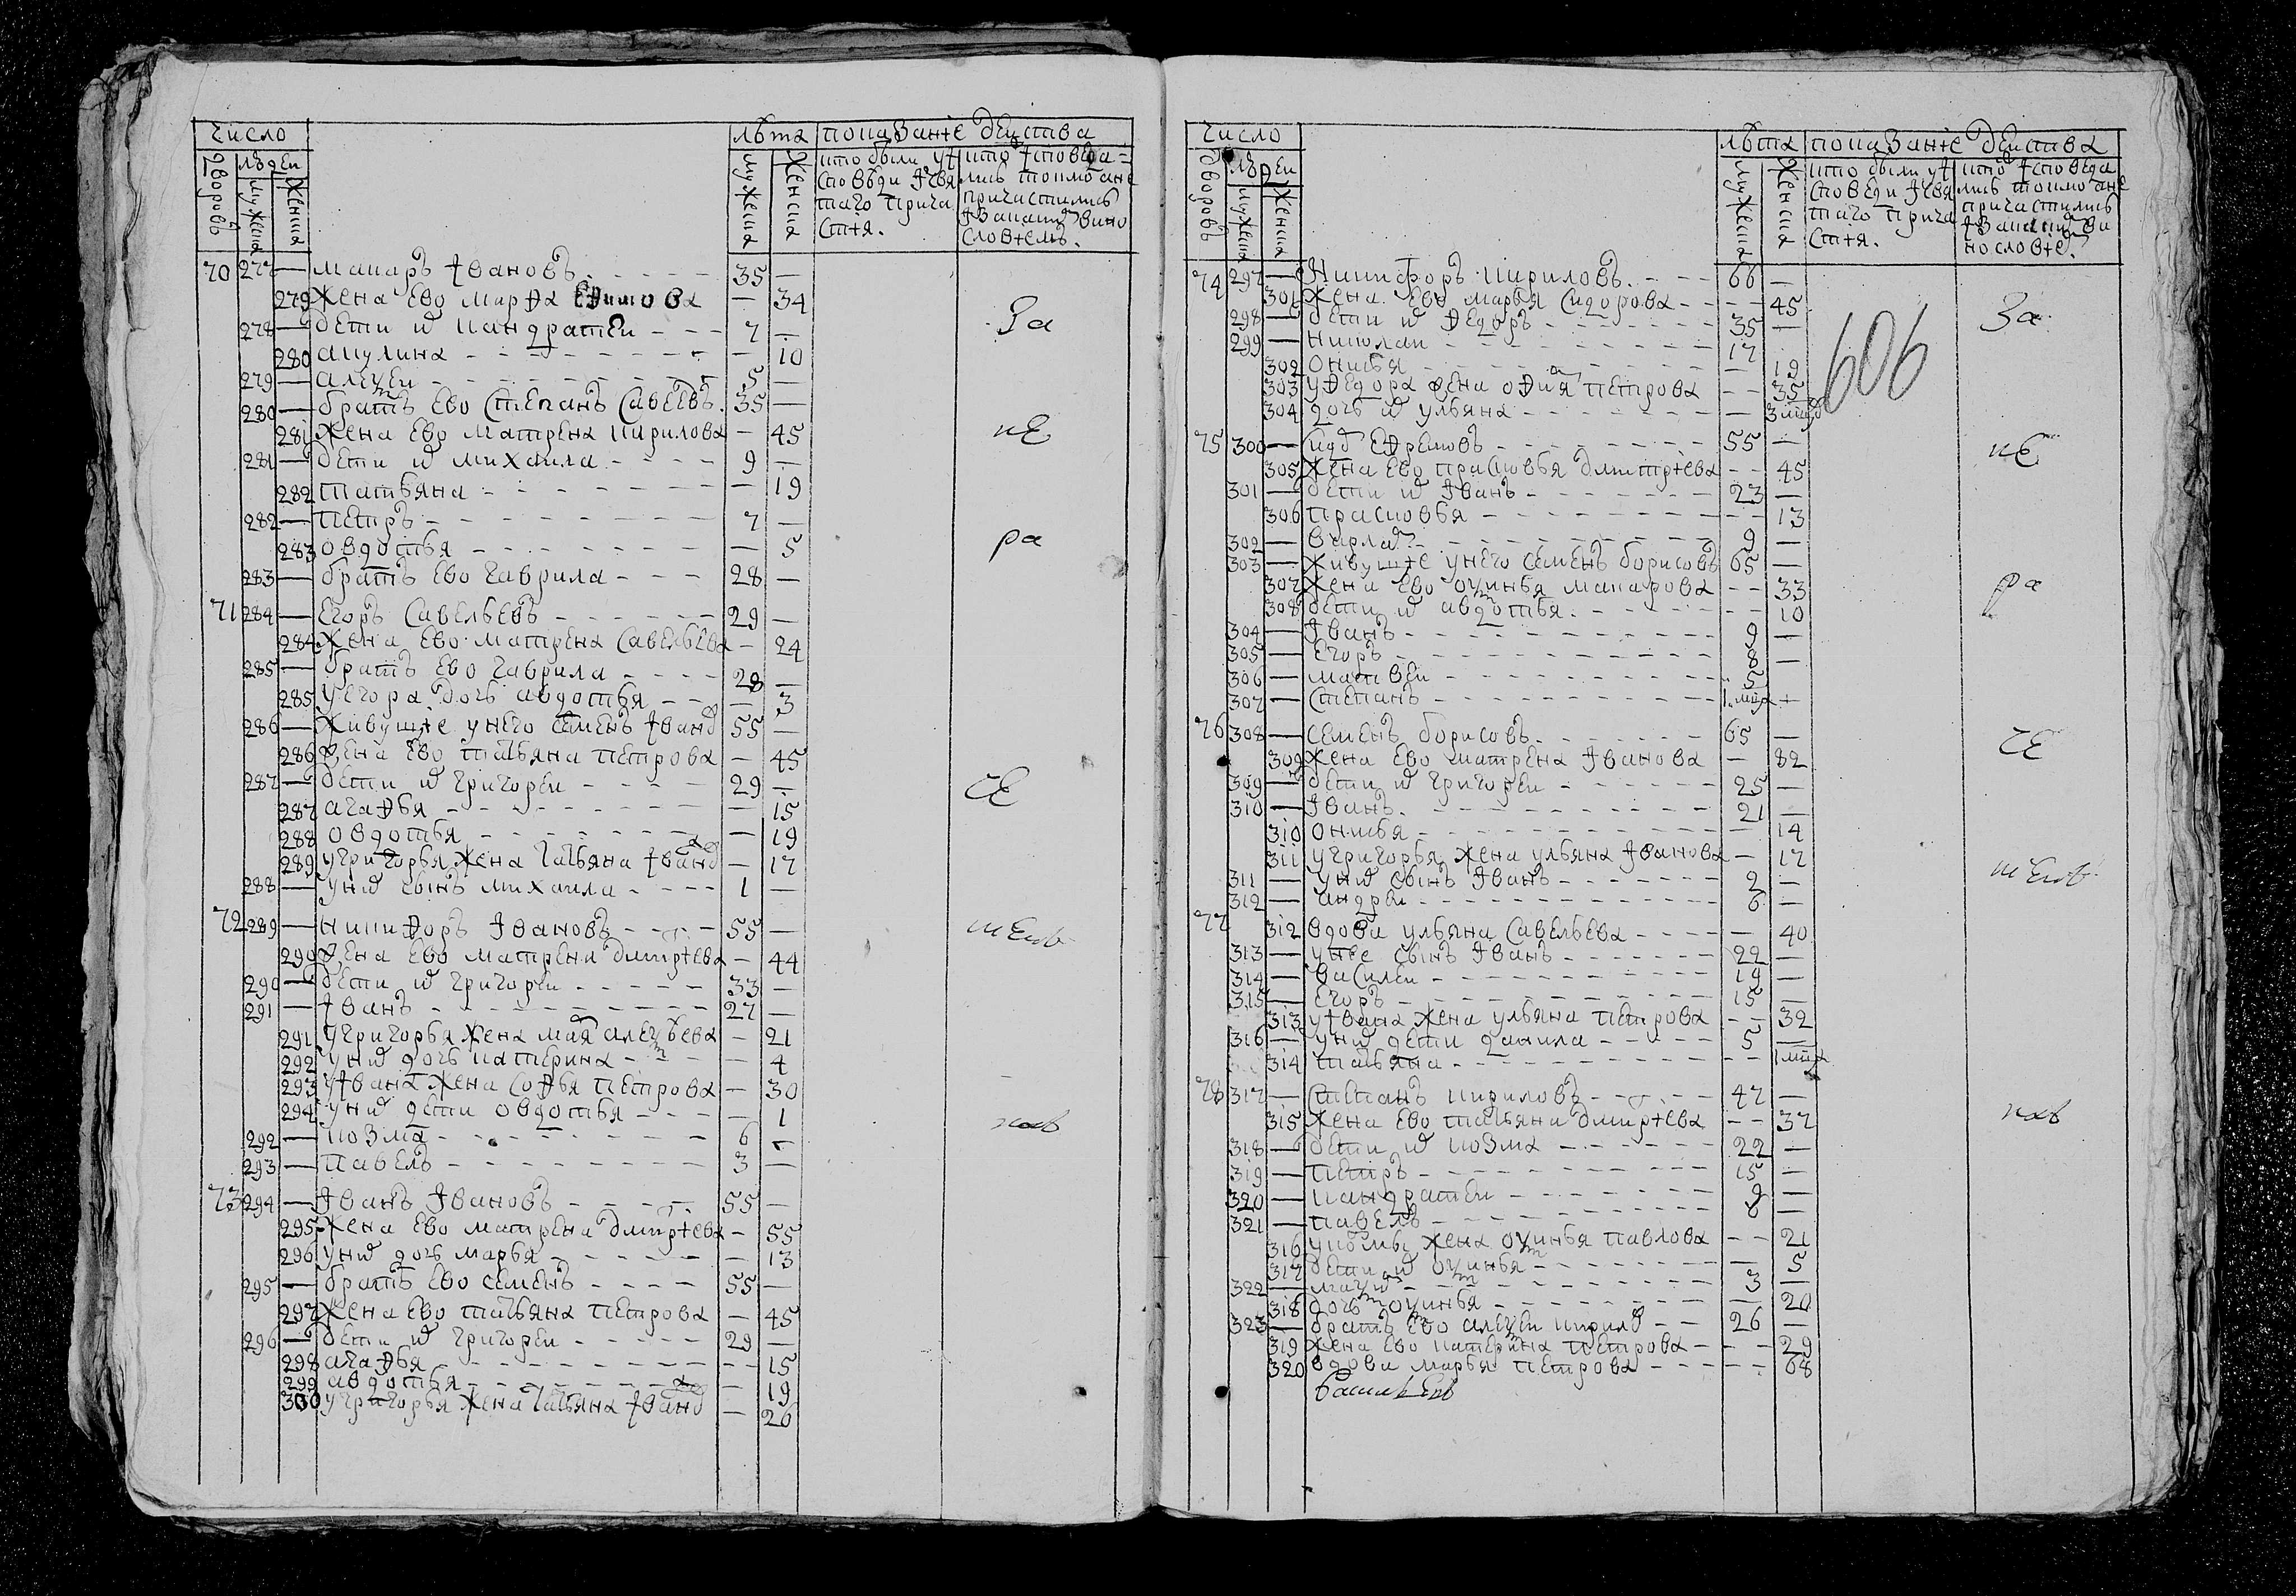 число
лѣта показанiе действа
дворовъ людеи
мужеска женска
мужеска женска
кто были у iсповѣди i святаго причастiя.
кто iсповедались токмо а не причастились i за каким винословiемъ.
70 277 — макаръ iвановъ 35 —
279 жена ево марфа ефимова — 34
278 — дети их кандратеи 7 —
280 акулина — 10
279 — алеѯеи 5 —
280 — братъ ево степанъ савеевъ 35 —
281 жена ево матрена кирилова — 45
281 — дети их михаила 9 —
282 татьяна — 19
282 — петръ 7 —
283 овдотья — 5
283 — братъ ево гаврила 28 —
71 284 — егоръ савельевъ 29 —
284 жена ево матрена савельева — 24
285 — братъ ево гаврила 28 —
285 у егора дочь авдотья — 3
286 — живущiе у него семенъ iванов 55 —
286 жена ево татьяна петрова — 45
287 — дети их григореи 29 —
287 агафья — 15
288 овдотья — 19
289 у григорья жена татьяна iванова — 17
288 — у них сынъ михаила 1 —
72 289 — никифоръ iвановъ 55 —
290 жена ево матрена дмитрiева — 44
290 — дети их григореи 33 —
291 — iванъ 27 —
291 у григорья жена мар алеѯѣева — 21
292 у них дочь катерина — 4
293 у iвана жена софья петрова — 30
294 у них дети овдотья — 1
292 — козма 6 —
293 — павелъ 3 —
73 294 — iванъ iвановъ 55 —
295 жена ево матрена дмитрiева — 55
296 у них дочь марья — 13
295 — братъ ево семенъ 55 —
297 жена ево татьяна петрова — 45
296 — дети их григореи 29 —
298 агафья — 15
299 авдотья — 19
300 у григорья жена татьяна iванова — 26
за
ке
ра
че
тков
число
лѣта показанiе действа
дворовъ людеи
мужеска женска
мужеска женска
кто были у iсповеди i святаго причастiя.
кто iсповедались токмо а не причастились i за каким винословiем.
606
74 297 — Никифоръ кириловъ 66 —
301 жена ево марья сидорова — 45
298 — дети их федоръ 35 —
299 — николаи 17 —
302 онисья — 19
303 у федора жена офимя петрова — 35
304 дочь их ульяна —
75 300 — ефремовъ 55 —
305 жена ево прасковья дмитрiева — 45
301 — дети их iванъ 23 —
306 прасковья — 13
302 — 9 —
303 — живущiе у него семенъ борисовъ 65 —
307 жена ево оѯинья макарова — 33
308 дети их авдотья — 10
304 — iванъ 9 —
305 — егоръ 8 —
306 — матвеи 5 —
307 — степанъ —
76 308 — семенъ борисовъ 65 —
309 жена ево матрена iванова — 82
309 — дети их григореи 25 —
310 — iванъ 21 —
310 онисья — 14
311 у григорья жена ульяна iванова — 17
311 — у них сынъ iванъ 2 —
312 — андреи 6 —
77 312 вдова ульяна савельева — 40
313 — у нее сынъ iванъ 22 —
314 — василеи 19 —
315 — егоръ 15 —
313 у iвана жена ульяна петрова — 32
316 — у них дети данила 5 —
314 татьяна —
78 317 — степанъ кириловъ 47 —
315 жена ево татьяна дмитрiева — 37
318 — дети их козма 22 —
319 — петръ 15 —
320 — кандратеи 9 —
321 — павелъ 8 —
316 у козмы жена оѯинья павлова — 21
317 дети их оѯинья — 5
322 — 3 —
318 дочь оѯинья — 20
323 — братъ ево алеѯеи кирилов 26 —
319 жена ево катерина петрова — 29
320 вдова марья петрова — 68
за
ке
ра
че